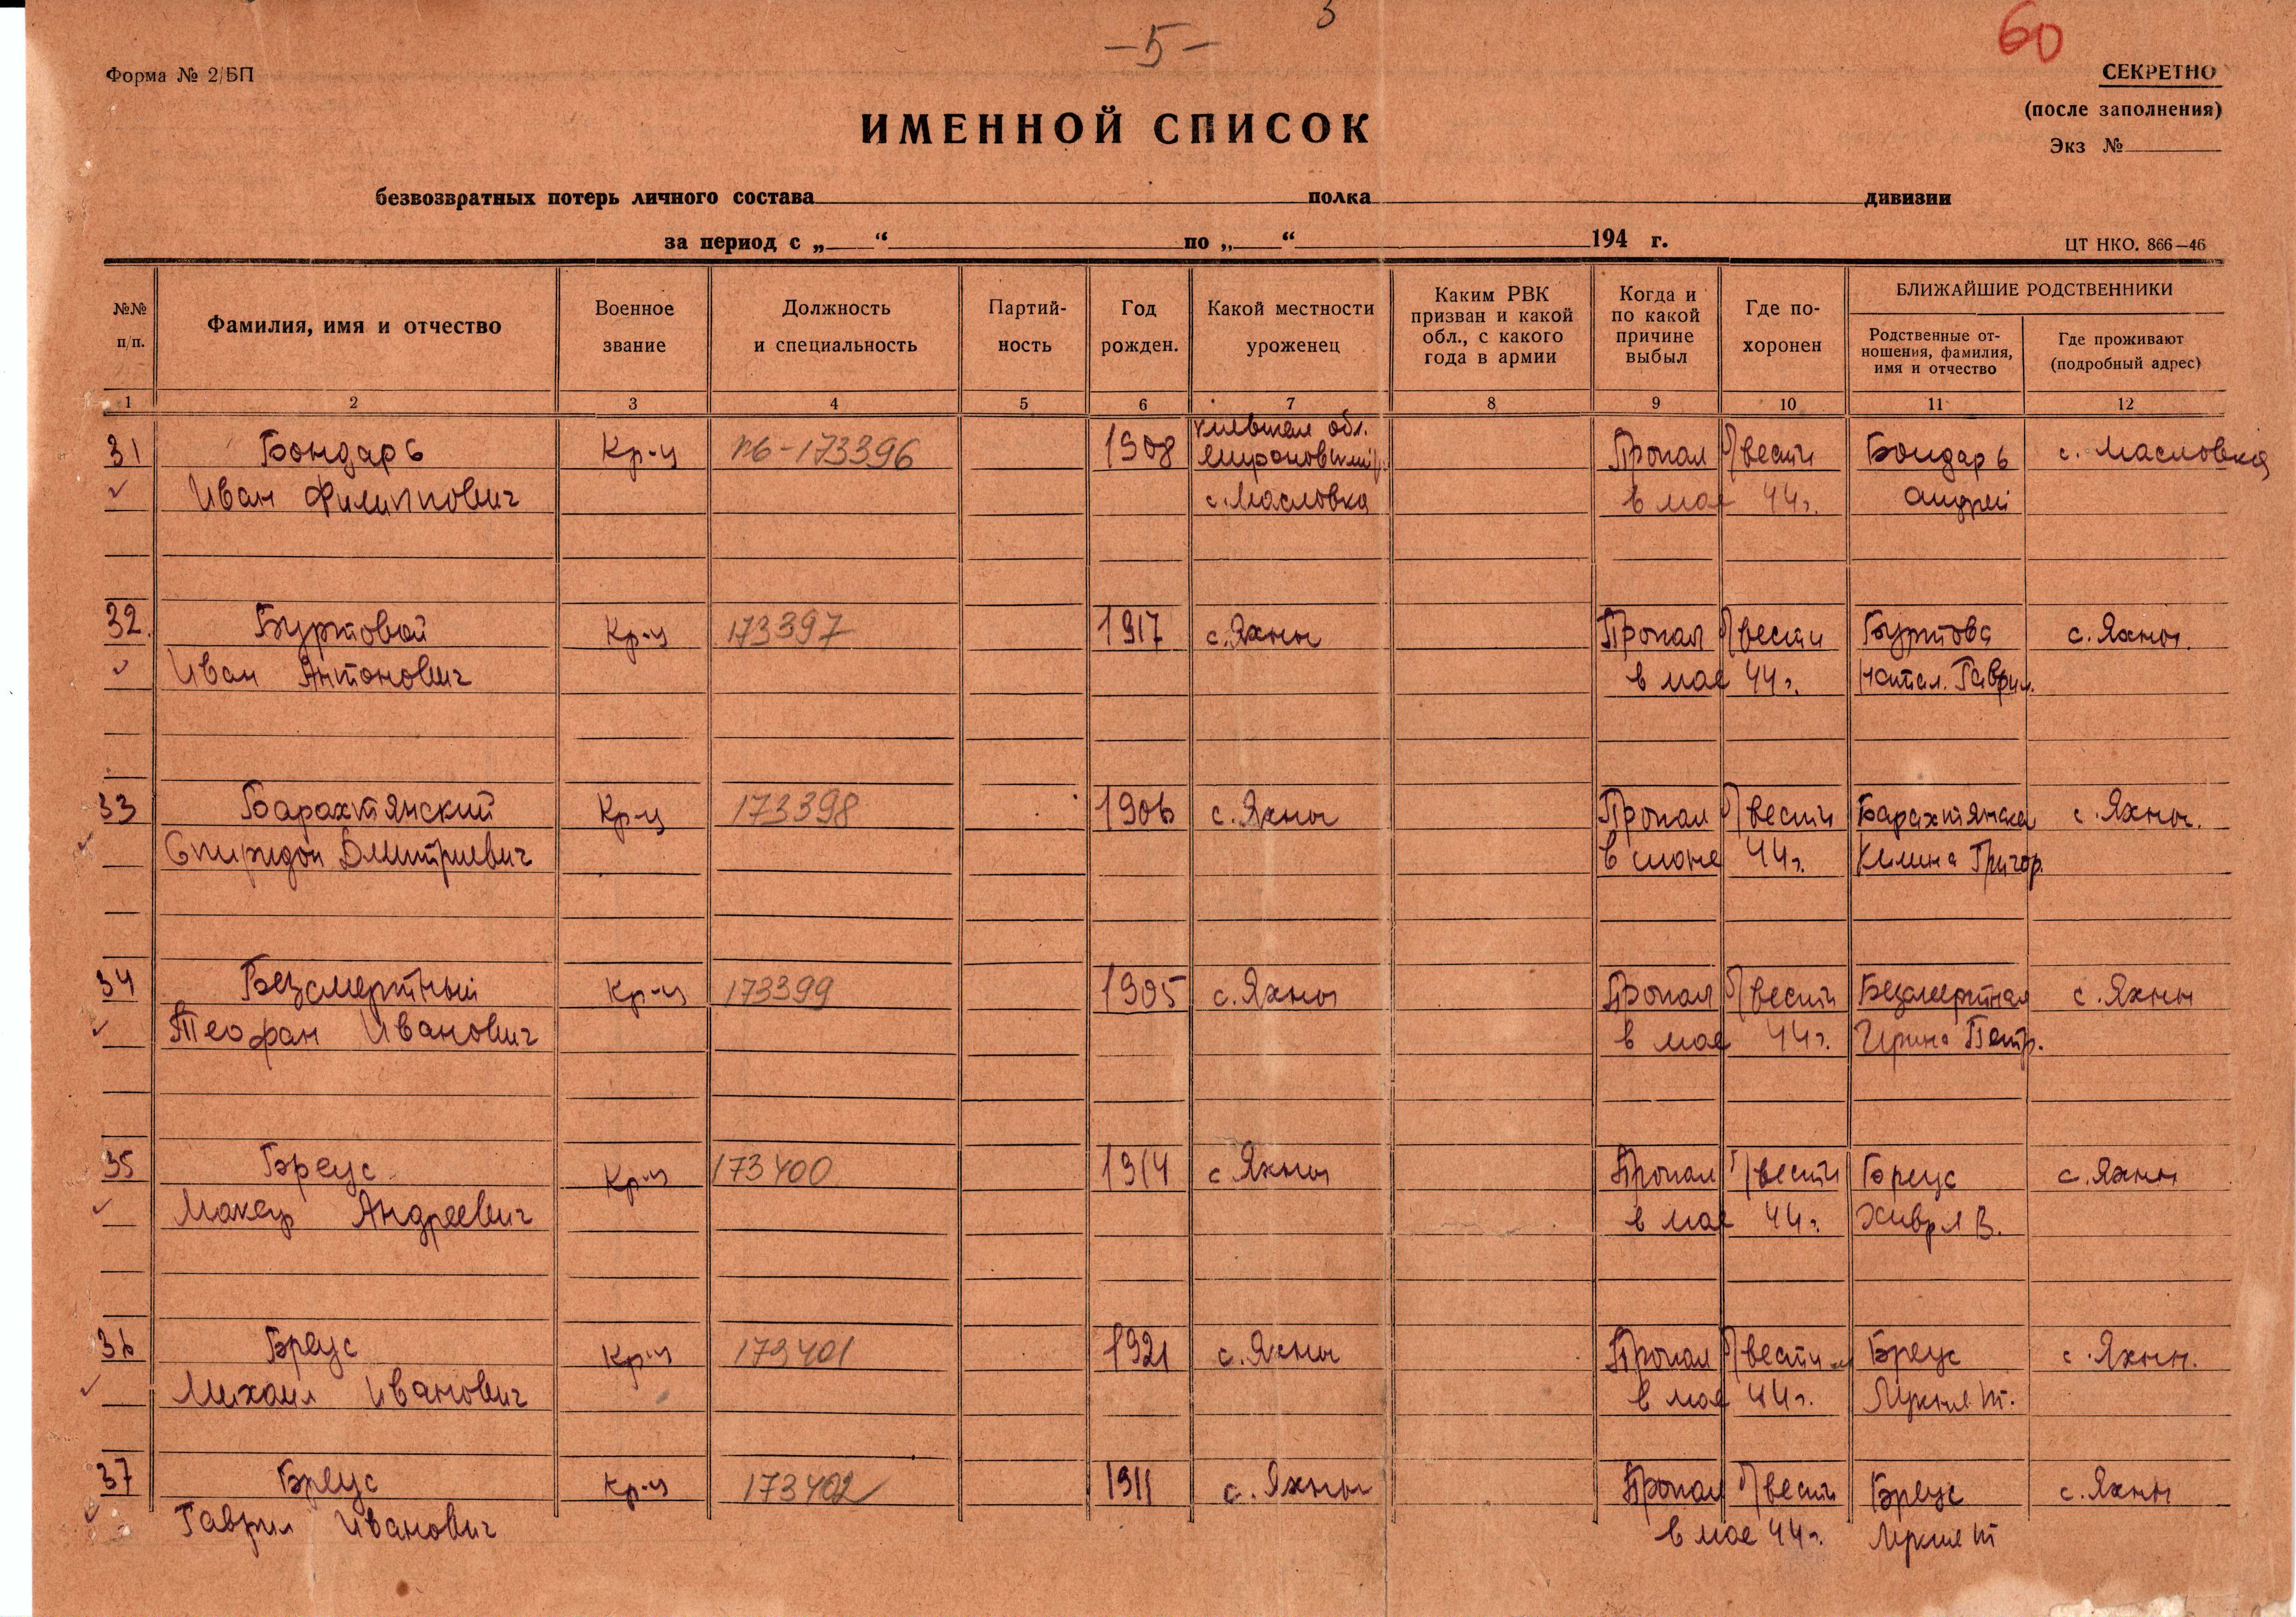 3
– 5 –
60
Форма № 2/БП
СЕКРЕТНО
(после заполнения)
Экз №
ИМЕННОЙ СПИСОК
безвозвратных потерь личного состава полка дивизии
за период с „ “ по „ “ 194 г.
ЦТ НКО. 866—46
№№ п/п.
Фамилия, имя и отчество
Военное звание
Должность и специальность
Партий- ность
Год рожден.
Какой местности уроженец
Каким РВК призван и какой обл., с какого года в армии
Когда и по какой причине выбыл
Где по- хоронен
БЛИЖАЙШИЕ РОДСТВЕННИКИ
Родственные от- ношения, фамилия, имя и отчество
Где проживают (подробный адрес)
1 2 3 4 5 6 7 8 9 10 11 12
Киевская обл.
31 Бондарь Кр-ц п6-173396 1908 Мироновский р. Пропал б/вести Бондарь с. Масловка
Иван Филиппович с. Масловка в мае 44г. Андрей
32. Буртовой Кр-ц 173397 1917 с. Яхны Пропал б/вести Буртова с. Яхны.
Иван Антонович в мае 44г. Натал. Гаврил.
33 Барахтянский Кр-ц 173398 1906 с. Яхны Пропал б/вести Барахтянска с. Яхны.
Спиридон Дмитриевич в июне 44г. Килина Григор.
34 Безсмертный Кр-ц 173399 1905 с. Яхны Пропал б/вести Безсмертная с. Яхны
Теофан Иванович в мае 44г. Ирина Петр.
35 Бреус Кр-ц 173400 1914 с Яхны Пропал б/вести Бреус с. Яхны
Макар Андреевич в мае 44г. Хивря В.
36 Бреус Кр-ц 173401 1921 с. Яхны Пропал б/вести Бреус с. Яхны.
Михаил Иванович в мае 44г.
37 Бреус Кр-ц 173402 1911 с. Яхны Пропал б/вести Бреус с. Яхны
Гаврил Иванович в мае 44г.